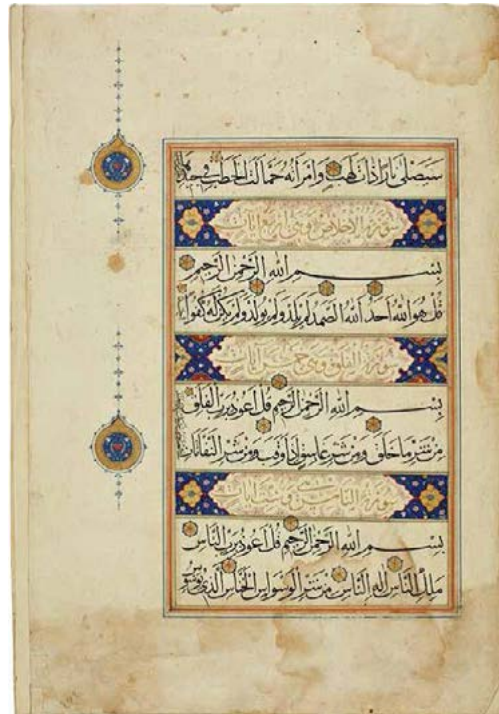 سَيَصْلَىٰ نَارًا ذَاتَ لَهَبٍ وَامْرَأَتُهُ حَمَّالَةَ الْحَطَبِ فِي جِيدِهَا
سورة الاخلاص وهي اربع ايات
بِسْمِ اللهِ الرَّحْمٰنِ الرَّحِيمِ
قُلْ هُوَ اللهُ أَحَدٌ اَللهُ الصَّمَدُ لَمْ يَلِدْ وَلَمْ يُولَدْ وَلَمْ يَكُنْ لَهُ كُفُوًا
سورة الفلق وهي خمس ايات
بِسْمِ اللهِ الرَّحْمٰنِ الرَّحِيمِ قُلْ أَعُوذُ بِرَبِّ الْفَلَقِ
مِنْ شَرِّ مَا خَلَقَ وَمِنْ شَرِّ غَاسِقٍ إِذَا وَقَبَ وَمِنْ شَرِّ النَّفَّاثَاتِ
سورة الناس وهي ست ايات
بِسْمِ اللهِ الرَّحْمٰنِ الرَّحِيمِ قُلْ أَعُوذُ بِرَبِّ النَّاسِ
مَلِكِ النَّاسِ إِلٰهِ النَّاسِ مِنْ شَرِّ الْوَسْوَاسِ الْخَنَّاسِ الَّذِي يُوَسْوِسُ